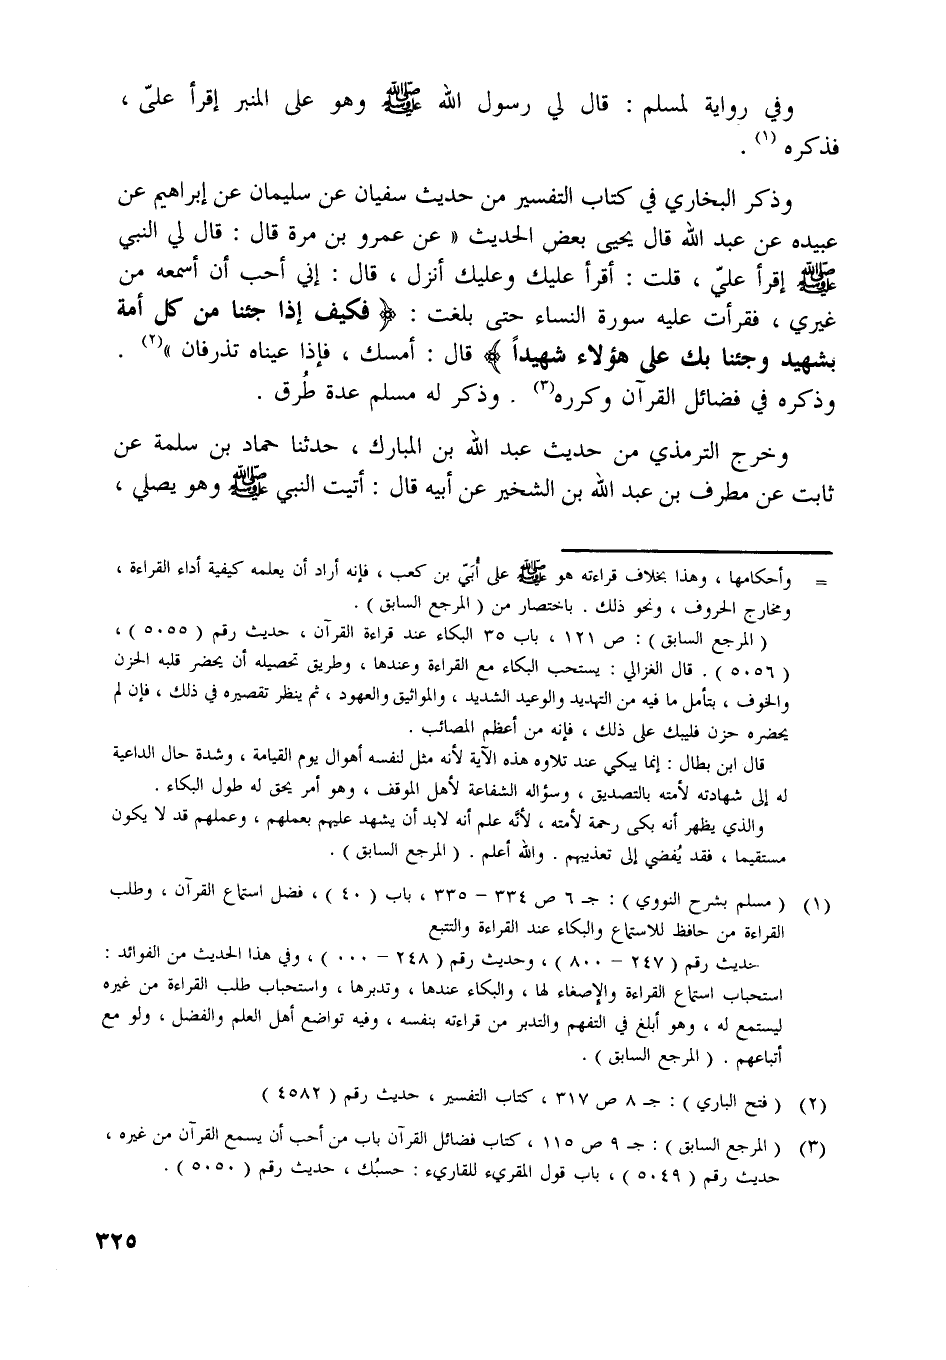 وفي رواية لمسلم : قال لي رسول الله ﷺ وهو على المنبر إقرأ عليّ ،
فذكره (١) .
وذكر البخاري في كتاب التفسير من حديث سفيان عن سليمان عن إبراهيم عن
عبيده عن عبد الله قال يحيى بعض الحديث « عن عمرو بن مرة قال : قال لي النبي
ﷺ إقرأ عليّ ، قلت : أقرأ عليك وعليك أنزل ، قال : إني أحب أن أسمعه من
غيري ، فقرأت عليه سورة النساء حتى بلغت : ﴿ فكيف إذا جئنا من كل أمة
بشهيد وجئنا بك على هؤلاء شهيداً ﴾ قال : أمسك ، فإذا عيناه تذرفان »(٢) .
وذكره في فضائل القرآن وكرره(٣) . وذكر له مسلم عدة طُرق .
وخرج الترمذي من حديث عبد الله بن المبارك ، حدثنا حماد بن سلمة عن
ثابت عن مطرف بن عبد الله بن الشخير عن أبيه قال : أتيت النبي ﷺ وهو يصلي ،
= وأحكامها ، وهذا بخلاف قراءته هو ﷺ على أُبَيّ بن كعب ، فإنه أراد أن يعلمه كيفية أداء القراءة ،
ومخارج الحروف ، ونحو ذلك . باختصار من ( المرجع السابق ) .
( المرجع السابق ) : ص ١٢١ ، باب ٣٥ البكاء عند قراءة القرآن ، حديث رقم ( ٥٠٥٥ ) ،
( ٥٠٥٦ ) . قال الغزالي : يستحب البكاء مع القراءة وعندها ، وطريق تحصيله أن يحضر قلبه الحزن
والخوف ، بتأمل ما فيه من التهديد والوعيد الشديد ، والمواثيق والعهود ، ثم ينظر تقصيره في ذلك ، فإن لم
يحضره حزن فليبك على ذلك ، فإنه من أعظم المصائب .
قال ابن بطال : إنما يبكي عند تلاوه هذه الآية لأنه مثل لنفسه أهوال يوم القيامة ، وشدة حال الداعية
له إلى شهادته لأمته بالتصديق ، وسؤاله الشفاعة لأهل الموقف ، وهو أمر يحق له طول البكاء .
والذي يظهر أنه بكى رحمة لأمته ، لأنّه علم أنه لابد أن يشهد عليهم بعملهم ، وعملهم قد لا يكون
مستقيما ، فقد يُفضي إلى تعذيبهم . والله أعلم . ( المرجع السابق ) .
(١) ( مسلم بشرح النووي ) : جـ ٦ ص ٣٣٤ – ٣٣٥ ، باب ( ٤٠ ) ، فضل استماع القرآن ، وطلب
القراءة من حافظ للاستماع والبكاء عند القراءة والتتبع
حديث رقم ( ٢٤٧ – ٨٠٠ ) ، وحديث رقم ( ٢٤٨ – ٠٠٠ ) ، وفي هذا الحديث من الفوائد :
استحباب استماع القراءة والإصغاء لها ، والبكاء عندها ، وتدبرها ، واستحباب طلب القراءة من غيره
ليستمع له ، وهو أبلغ في التفهم والتدبر من قراءته بنفسه ، وفيه تواضع أهل العلم والفضل ، ولو مع
أتباعهم . ( المرجع السابق ) .
(٢) ( فتح الباري ) : جـ ٨ ص ٣١٧ ، كتاب التفسير ، حديث رقم ( ٤٥٨٢ )
(٣) ( المرجع السابق ) : جـ ٩ ص ١١٥ ، كتاب فضائل القرآن باب من أحب أن يسمع القرآن من غيره ،
حديث رقم ( ٥٠٤٩ ) ، باب قول المقريء للقاريء : حسبُك ، حديث رقم ( ٥٠٥٠ ) .
٣٢٥